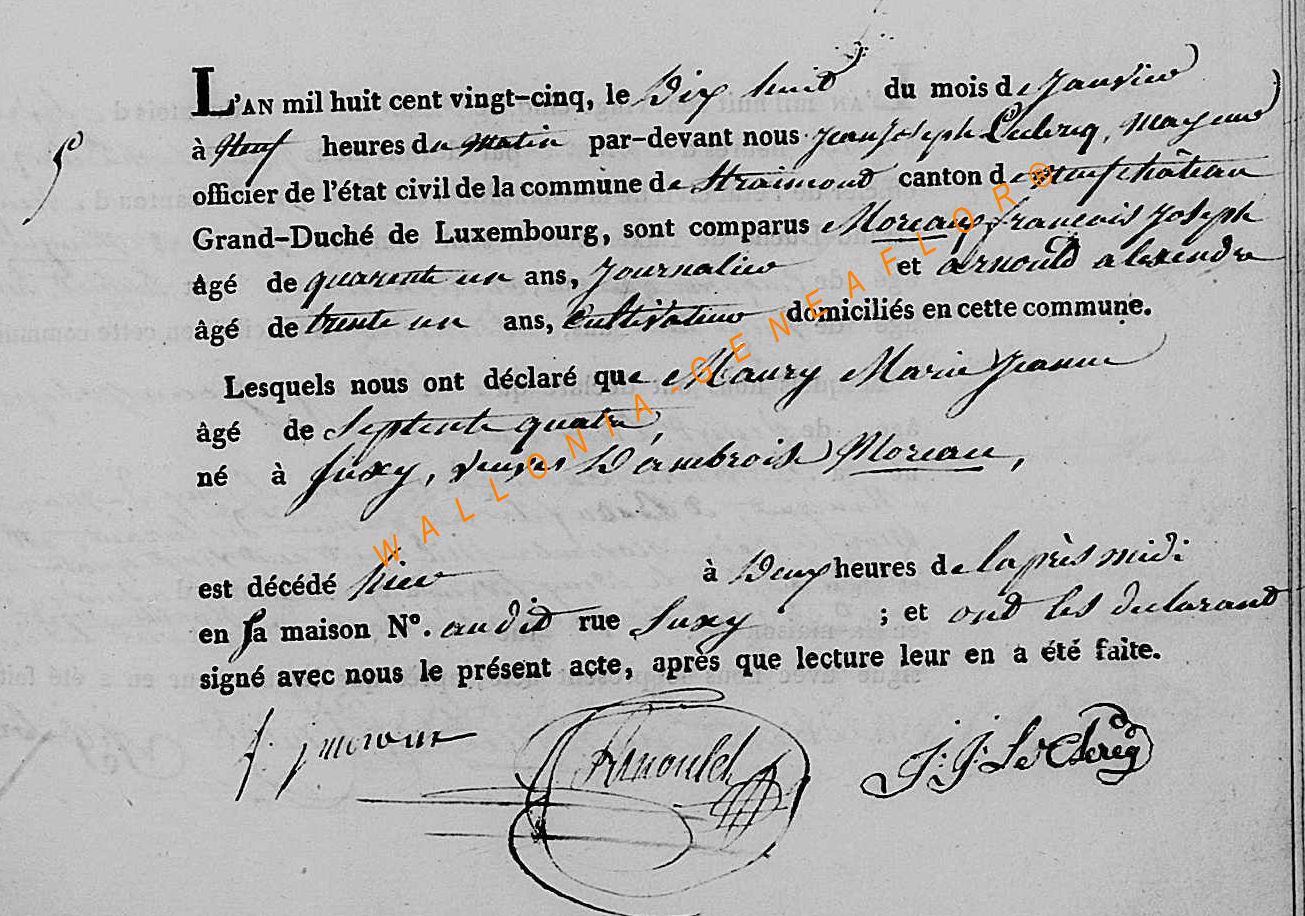 L'AN mil huit cent vingt-cinq, le Dix huit du mois de Janvier
à Neuf heures du Matin par-devant nous Jean Joseph Leclercq, Mayeur
officier de l'état civil de la commune de Straimont canton de neufchâteau
Grand-Duché de Luxembourg, sont comparus Moreaux francois Joseph
âgé de quarente un ans, Journalier et arnould alexendre
âgé de trente un ans, Cultivateur domiciliés en cette commune.
Lesquels nous ont déclaré que Maury Marie Jeanne
âgé de Septente quatre,
né à Suxy, veuve D'ambroise Moreau,
est décédé hier à Deux heures de laprès midi
en sa maison N°. audit rue Suxy ; et ont les declarant
signé avec nous le présent acte, après que lecture leur en a été faite.
f. j moraux Arnould J: J: Le Clercq
WALLONIA-GENEAFLOR®